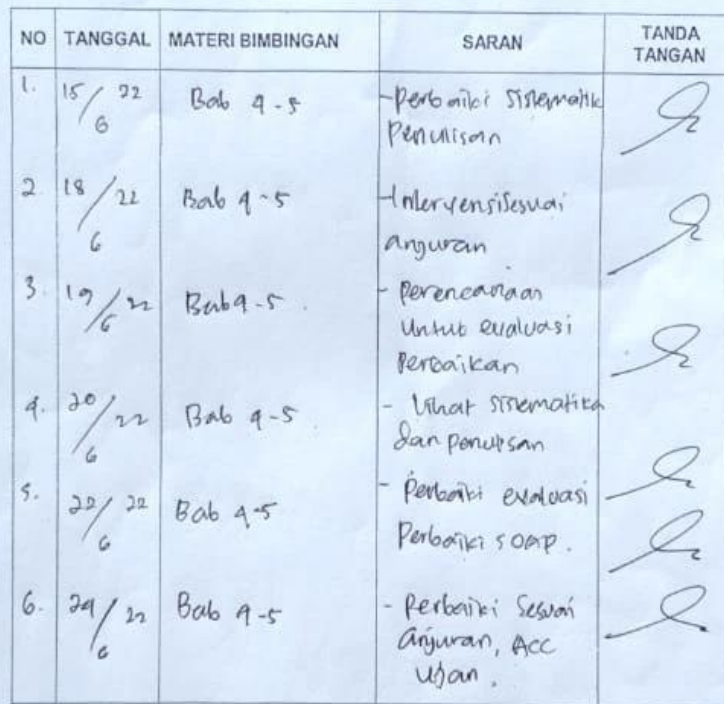 NO TANGGAL MATERI BIMBINGAN SARAN TANDA TANGAN
1. 15/6 22 Bab 4-5 - Perbaiki sistematik
Penulisan
2 18/6 22 Bab 4-5 - Intervensi sesuai
anjuran
3. 19/6 22 Bab 4-5. - Perencanaan
Untuk evaluasi
Perbaikan
4. 20/6 22 Bab 4-5 - Lihat sistematika
dan penulisan
5. 22/6 22 Bab 4-5 - Perbaiki evaluasi
Perbaiki SOAP.
6. 24/6 22 Bab 4-5 - Perbaiki sesuai
anjuran, Acc
Ujian.